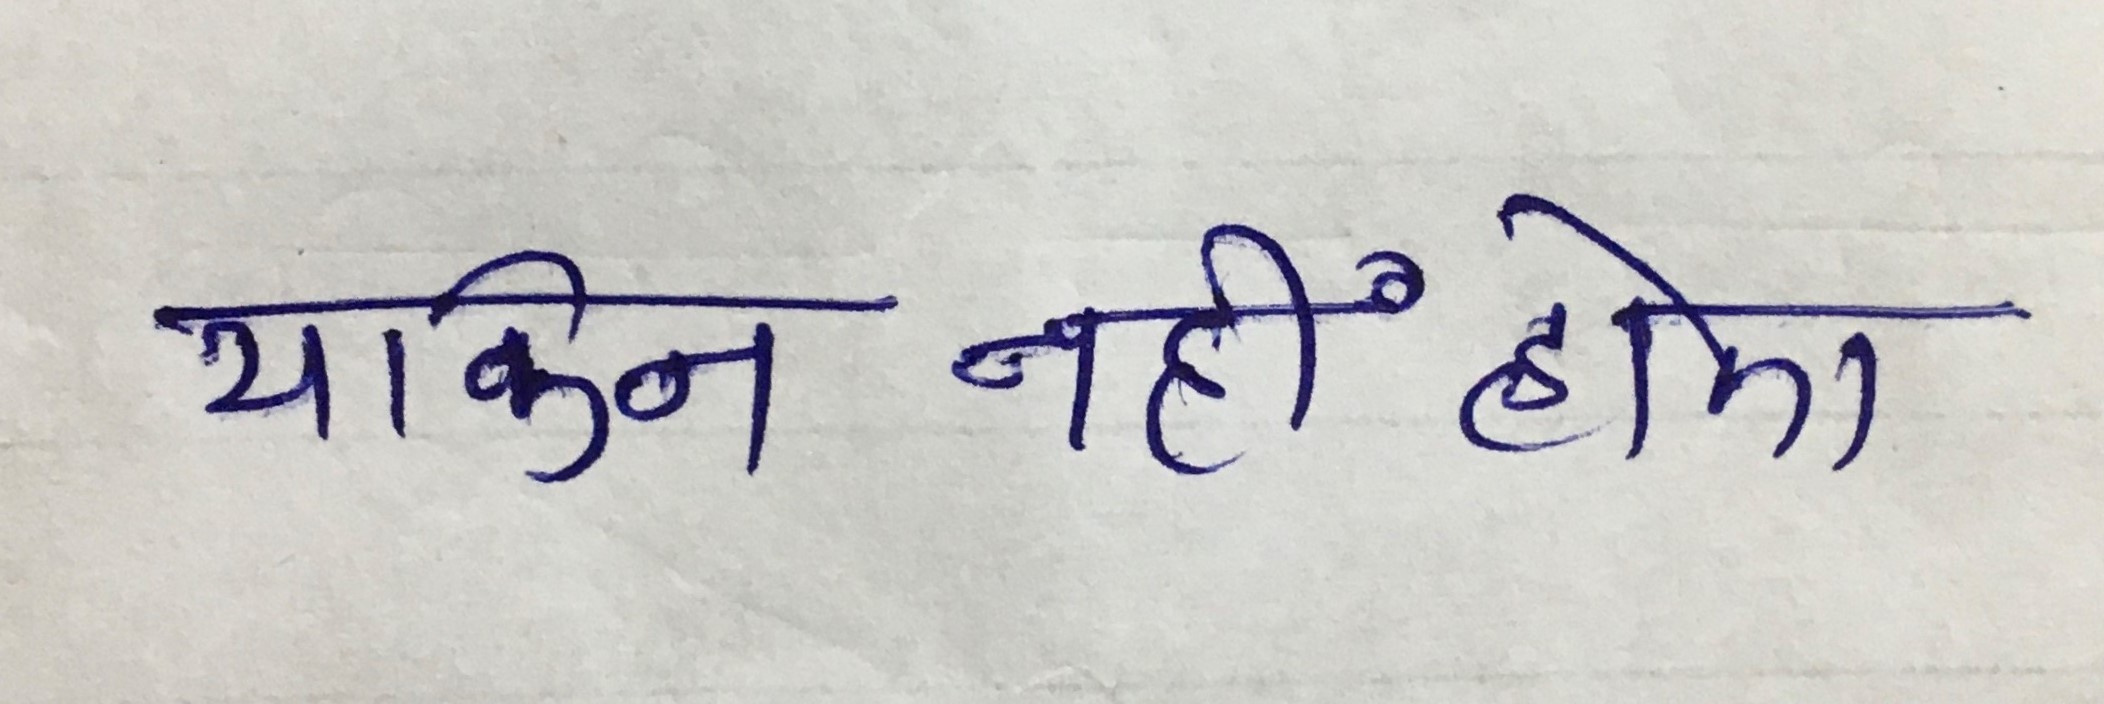 यकिन नहीं होगा